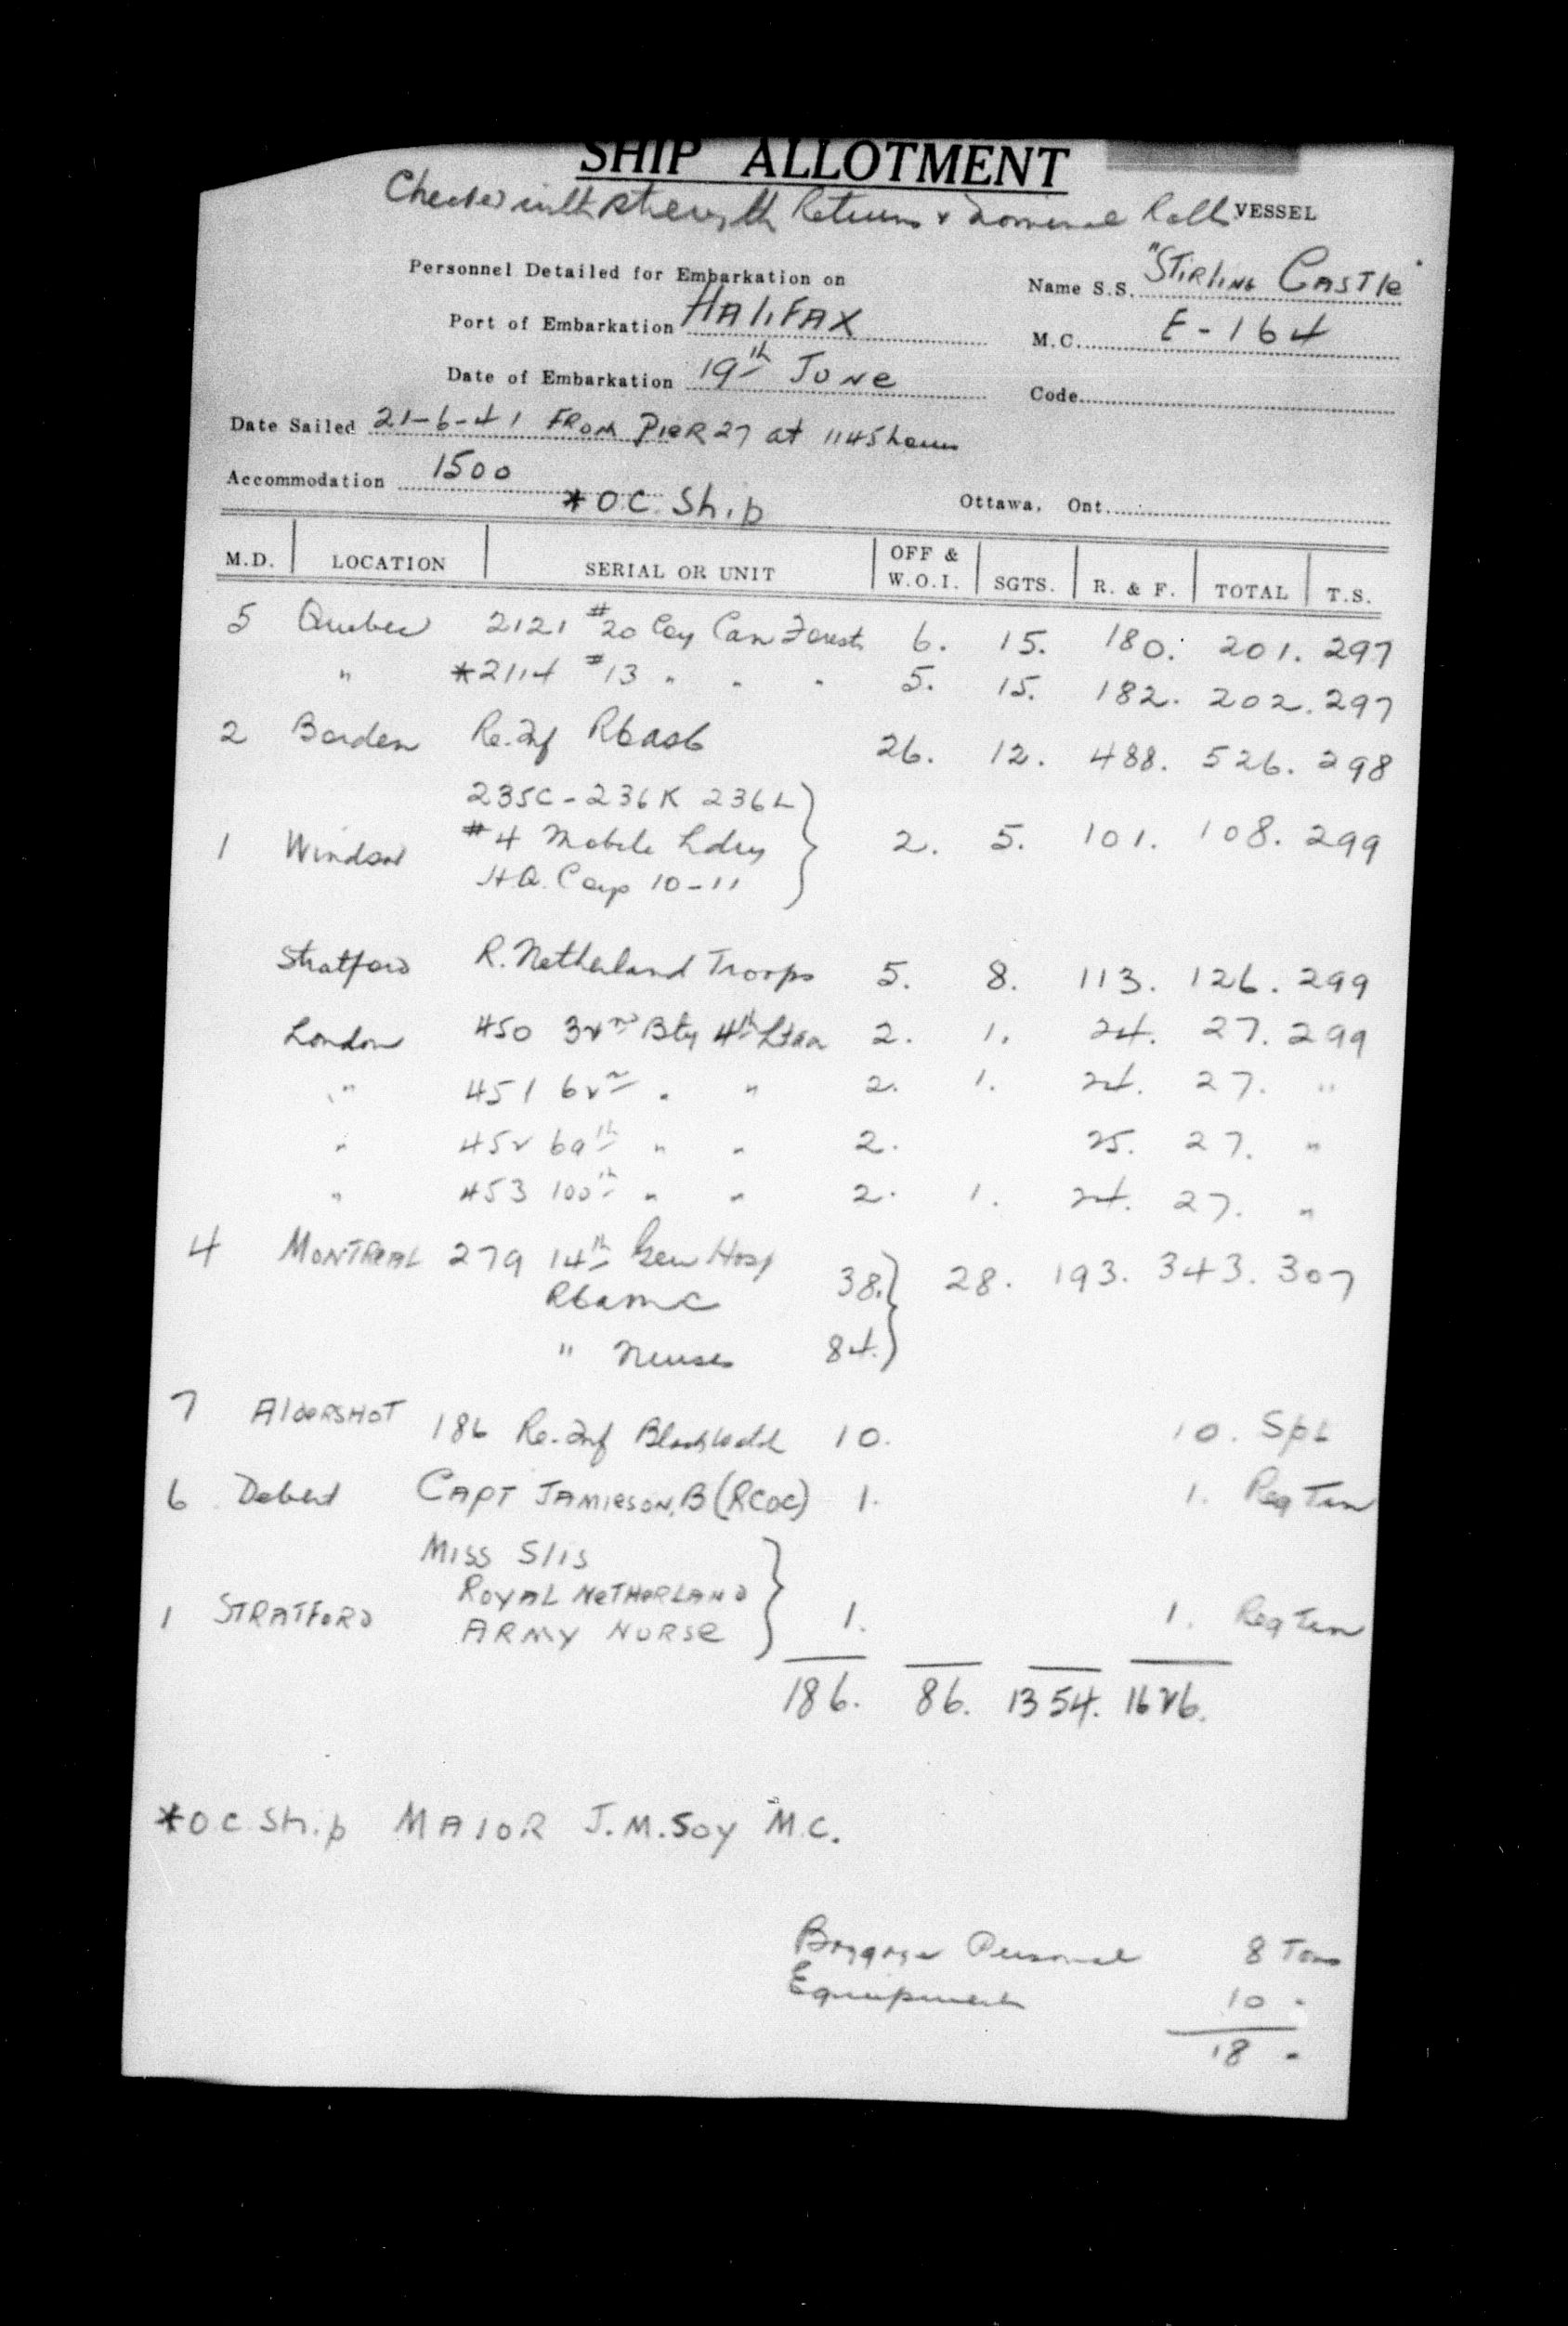 SHIP ALLOTMENT
Checked with Strength Returns & Nominal Rolls VESSEL
Personnel Detailed for Embarkation on
Name S.S. "STIRLING CASTLE"
Port of Embarkation HALIFAX
M.C. E-164
Date of Embarkation 19th JUNE
Code
Date Sailed 21-6-41 FROM PIER 27 at 1145 hours
Accommodation 1500
*O.C. Ship
Ottawa, Ont.
M.D. LOCATION SERIAL OR UNIT OFF & W.O.I. SGTS. R. & F. TOTAL T.S.
5 Quebec 2121 #20 Coy Can Forests 6. 15. 180. 201. 297
" *2114 #13 " " " 5. 15. 182. 202. 297
2 Borden Re.Inf RCASC 26. 12. 488. 526. 298
235C-236K 236L
1 Windsor #4 Mobile Ldry 2. 5. 101. 108. 299
H.Q. Corp 10-11
Stratford R. Netherland Troops 5. 8. 113. 126. 299
London 450 32nd Bty 4th 2. 1. 24. 27. 299
" 451 62nd " " 2. 1. 24. 27. "
" 452 69th " " 2. 25. 27. "
" 453 100th " " 2. 1. 24. 27. "
4 MONTREAL 279 14th Gen Hosp
RCAMC 38. 28. 193. 343. 307
" Nurses 84.
7 AlDERSHOT 186 Re.Inf Black Watch 10. 10. Spl
6 Debert CAPT JAMIESON, B (RCOC) 1. 1. Reg Trn
MISS SLIS
ROYAL NETHERLAND
1 STRATFORD ARMY NURSE 1. 1. Reg Trn
186. 86. 1354. 1626.
*O.C. Ship MAJOR J.M. SOY M.C.
Baggage Personal 8 Tons
Equipment 10 "
18 "